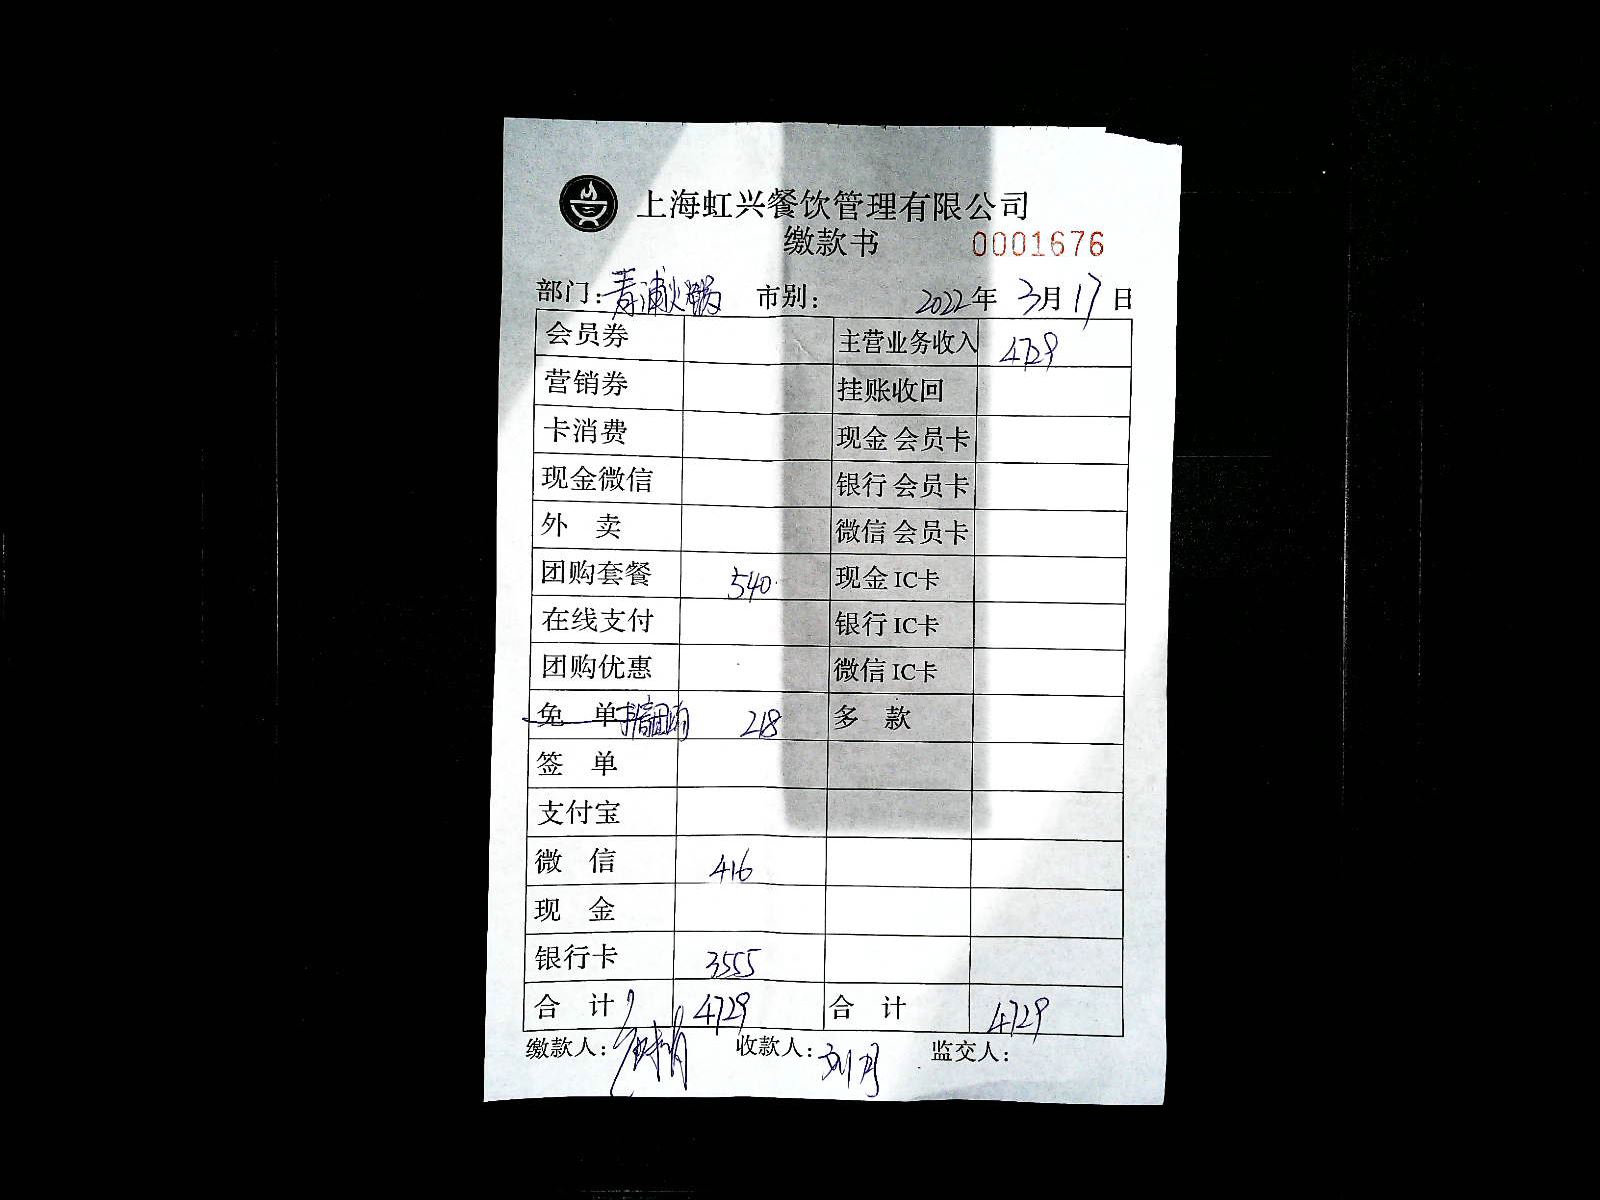 上海虹兴餐饮管理有限公司
缴款书 0001676
部门：青浦火锅 市别： 2022年 3月 17日
会员券 主营业务收入 4729
营销券 挂账收回
卡消费 现金 会员卡
现金微信 银行 会员卡
外 卖 微信 会员卡
团购套餐 540 现金 IC卡
在线支付 银行 IC卡
团购优惠 微信 IC卡
免 单 218 多 款
签 单
支付宝
微 信 416
现 金
银行卡 3555
合 计 4729 合 计 4729
缴款人： 收款人： 监交人：